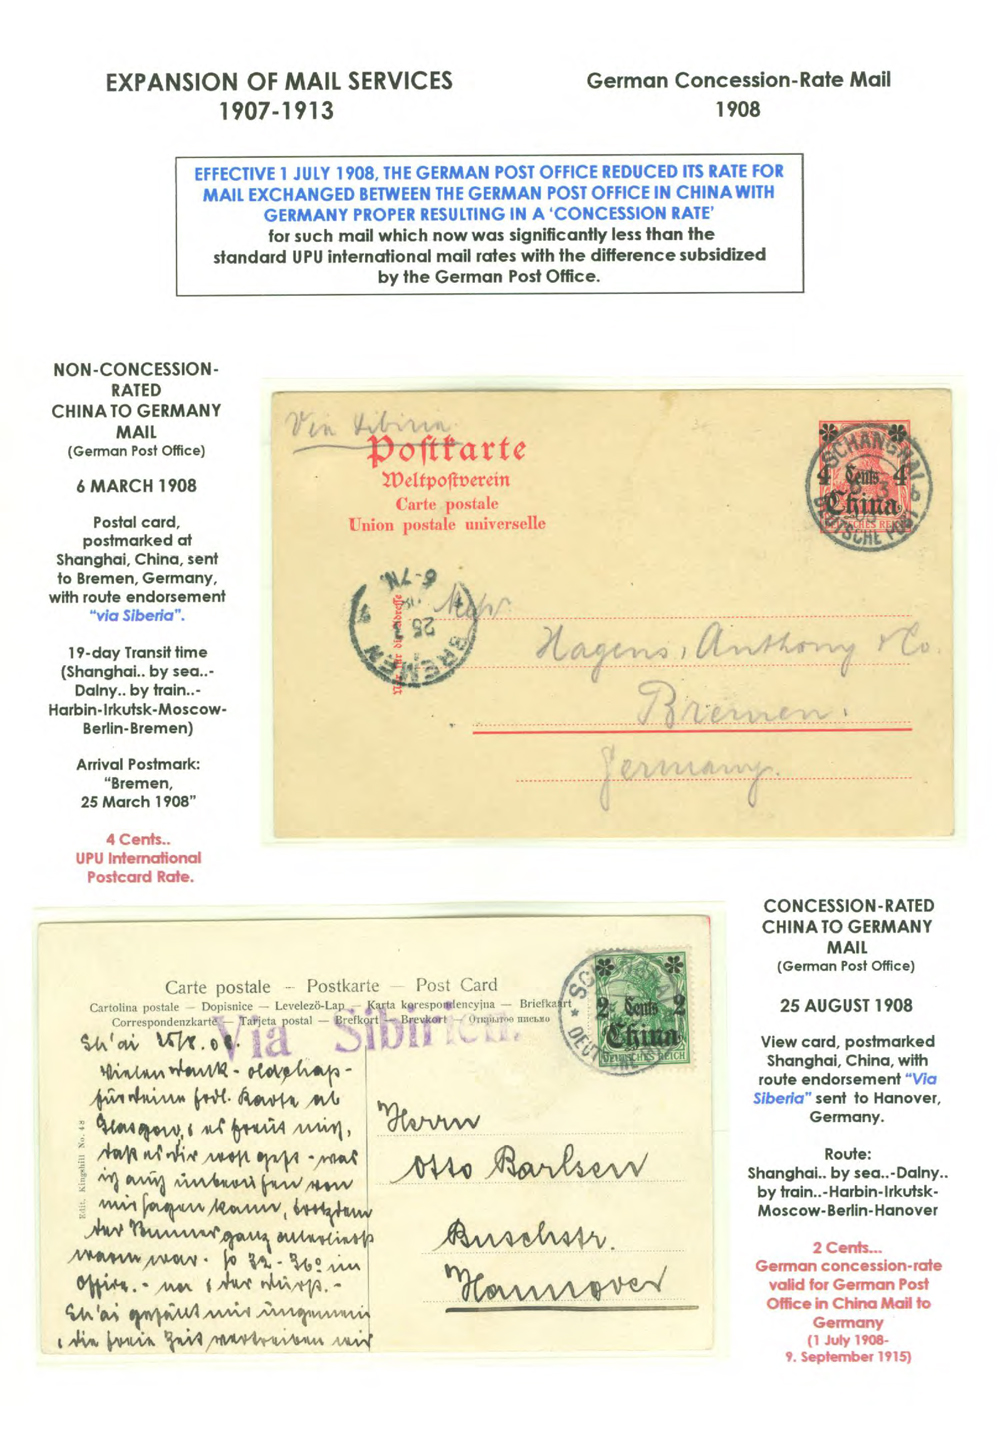 EXPANSION OF MAIL SERVICES
1907-1913
German Concession-Rate Mail
1908
EFFECTIVE 1 JULY 1908, THE GERMAN POST OFFICE REDUCED ITS RATE FOR
MAIL EXCHANGED BETWEEN THE GERMAN POST OFFICE IN CHINA WITH
GERMANY PROPER RESULTING IN A 'CONCESSION RATE'
for such mail which now was significantly less than the
standard UPU international mail rates with the difference subsidized
by the German Post Office.
NON-CONCESSION-
RATED
CHINA TO GERMANY
MAIL
(German Post Office)
6 MARCH 1908
Postal card,
postmarked at
Shanghai, China, sent
to Bremen, Germany,
with route endorsement
"via Siberia".
19-day Transit time
(Shanghai.. by sea..-
Dalny.. by train..-
Harbin-Irkutsk-Moscow-
Berlin-Bremen)
Arrival Postmark:
"Bremen,
25 March 1908"
4 Cents..
UPU International
Postcard Rate.
Via Sibiria
Postkarte
Weltpostverein
Carte postale
Union postale universelle
SCHANGHAI
4 Cents 4
China
DEUTSCHES REICH
DEUTSCHE POST
6-7N.
25
3
BREMEN
Nur für die Adresse
Messr
Hagens, Anthony & Co.
Bremen.
Germany.
Carte postale — Postkarte — Post Card
Cartolina postale — Dopisnice — Levelezö-Lap — Karta korespondencyjna — Briefkaart
Correspondenzkarte — Tarjeta postal — Brefkort — Brevkort — Открытое письмо
Via Sibirien.
2 Cents 2
China
DEUTSCHES REICH
Sh'ai 25/8.08.
Vielen Dank - oldchap -
für Deine frdl. Karte ab
Glasgow, es freut mich,
daß es Dir wohl geht - was
ich auch
von
mir sagen kann, trotzdem
der Sommer ganz
warm war. so 32 - 36° im
Office. -
Sh'ai gefällt mir ungemein
die freie Zeit vertreiben wir
Edit. Kingshill No. 48
Herrn
Otto Barlsen
Buschstr.
Hannover
CONCESSION-RATED
CHINA TO GERMANY
MAIL
(German Post Office)
25 AUGUST 1908
View card, postmarked
Shanghai, China, with
route endorsement "Via
Siberia" sent to Hanover,
Germany.
Route:
Shanghai.. by sea..-Dalny..
by train..-Harbin-Irkutsk-
Moscow-Berlin-Hanover
2 Cents...
German concession-rate
valid for German Post
Office in China Mail to
Germany
(1 July 1908-
9. September 1915)